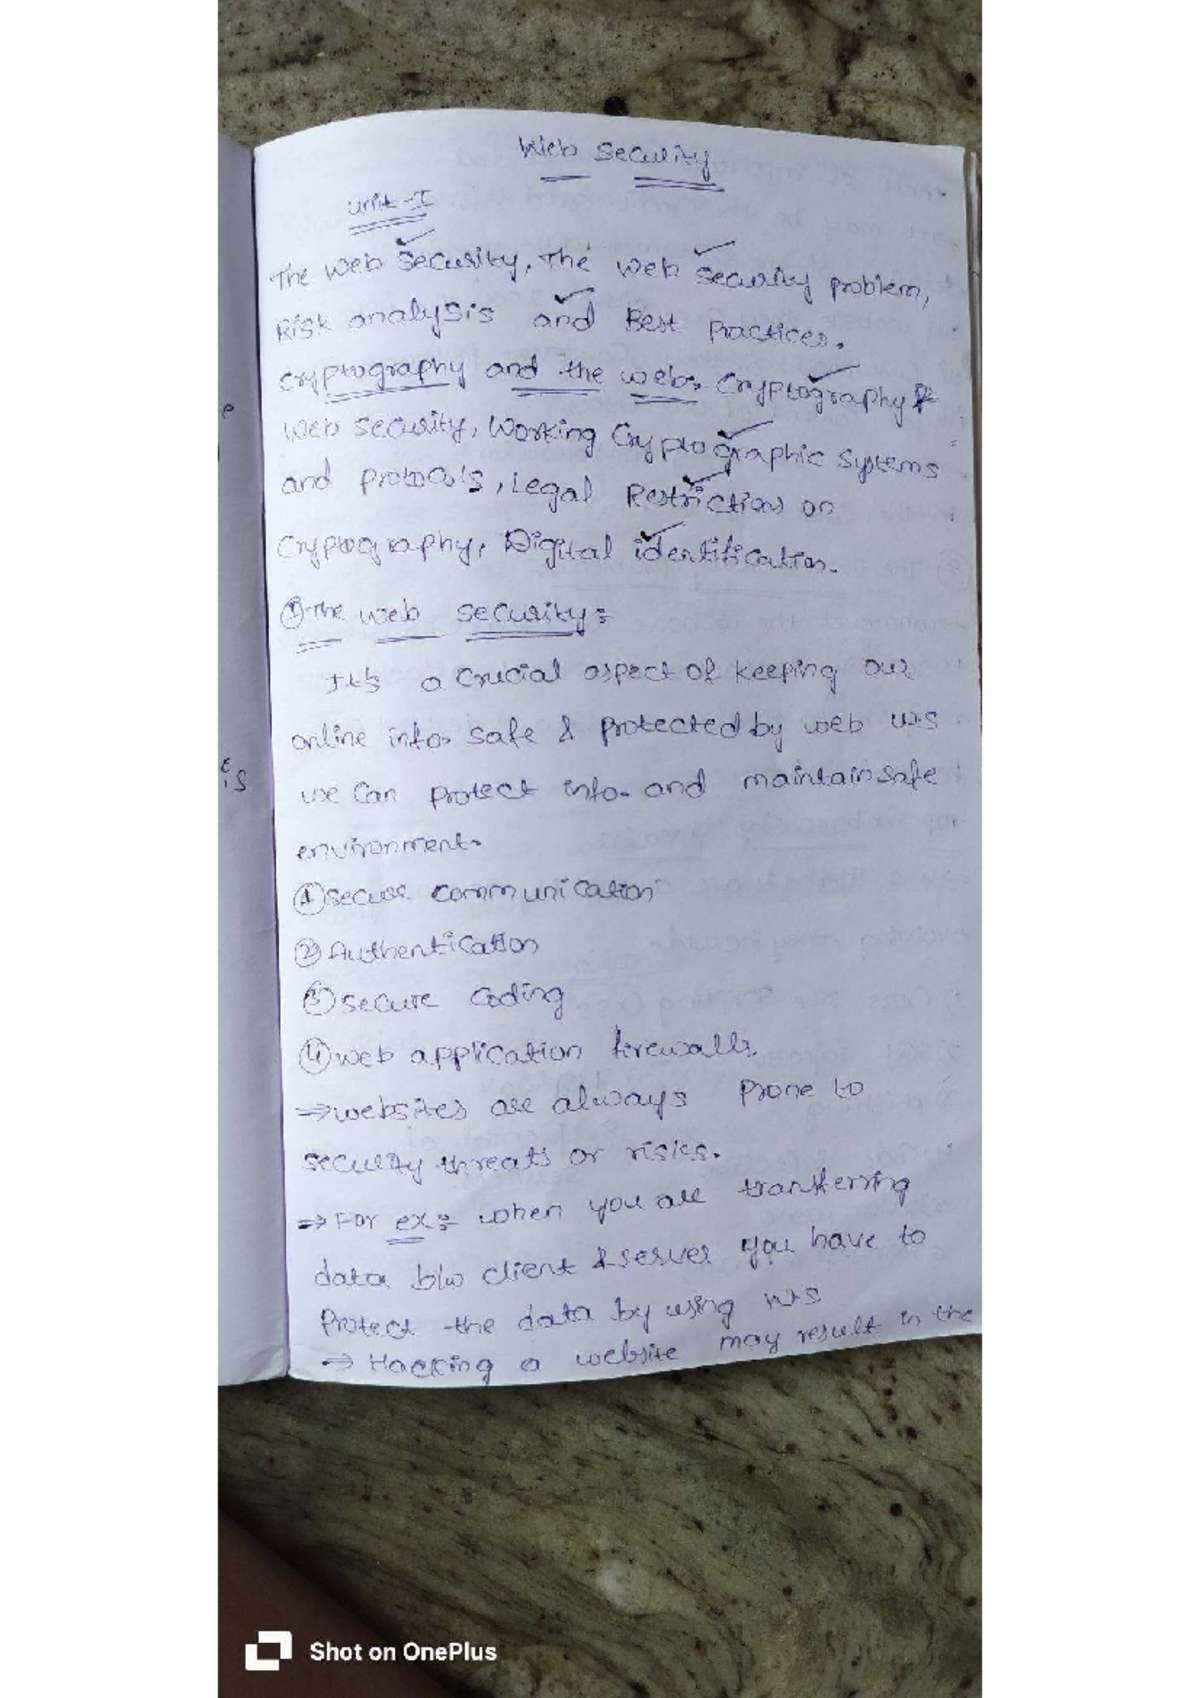 Web Security
Unit-I
The Web Security, The Web Security problem,
Risk analysis and Best Practices.
Cryptography and the web, Cryptography &
Web Security, Working Cryptographic Systems
and Protocols, Legal Restrictions on
Cryptography, Digital identification.
① The web security:
It's a crucial aspect of keeping our
online info. safe & protected by web w.s
we can protect info. and maintain safe
environment.
① Secure communication
② Authentication
③ Secure coding
④ web application firewalls.
⇒ websites are always prone to
security threats or risks.
⇒ For ex: when you are transferring
data b/w client & server you have to
Protect the data by using w.s
⇒ Hacking a website may result in the
Shot on OnePlus